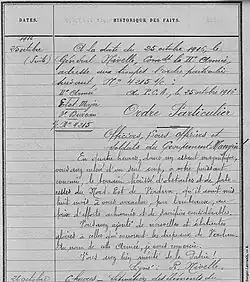 HISTORIQUE DES FAITS.
1916
25 octobre
(Suite)
A la date du 25 octobre 1916, le
Général Nivelle, Comdt la IIe Armée,
adresse aux troupes l'ordre particulier
suivant, No 415
IIe Armée
Etat Major
3e Bureau
No 415
au P.C.A., le 25 octobre 1916
Ordre Particulier
Officiers, Sous Officiers et
Soldats du Groupement Mangin
En quatre heures, dans un assaut magnifique,
vous avez enlevé d'un seul coup, à votre puissant
ennemi, le terrain, hérissé d'obstacles et de forte-
resses du Nord-Est de Verdun, qu'il avait mis
huit mois à vous arracher, par lambeaux, au
prix d'efforts acharnés et de sacrifices considérables.
Vous avez ajouté de nouvelles et éclatantes
gloires à celles qui couvrent les drapeaux de Verdun.
Au nom de cette Armée, je vous remercie.
Vous avez bien mérité de la Patrie!
Signé: R. Nivelle.
26 octobre